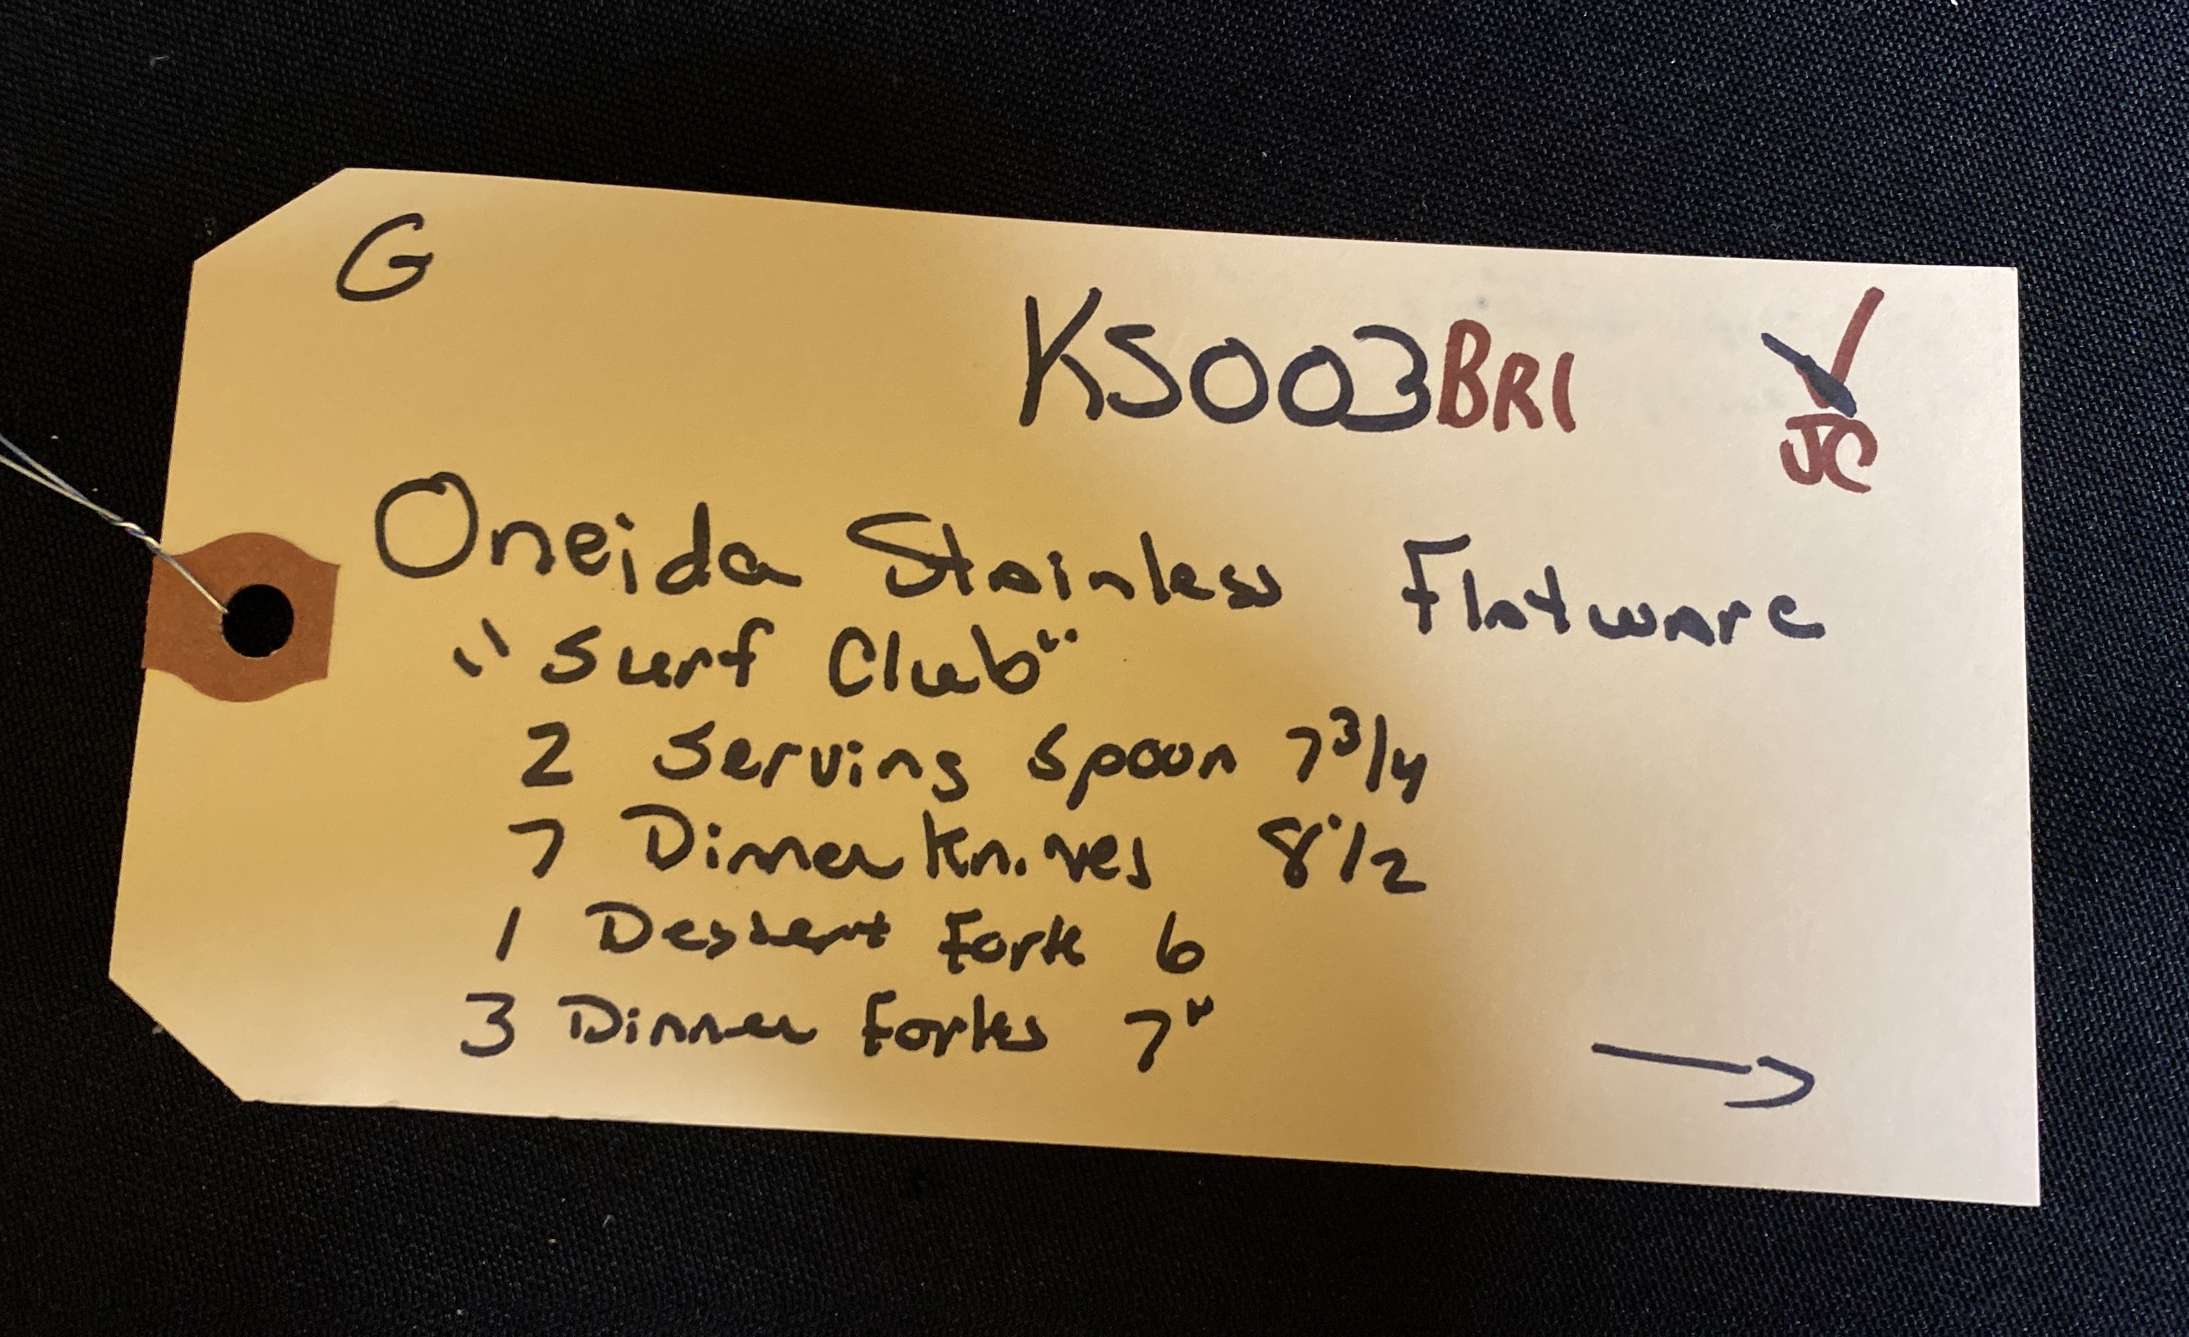 G
KS003BR1
JC
Oneida Stainless Flatware
"Surf Club"
2 Serving Spoon 7 3/4
7 Dinner Knives 8 1/2
1 Dessert Fork 6
3 Dinner Forks 7"